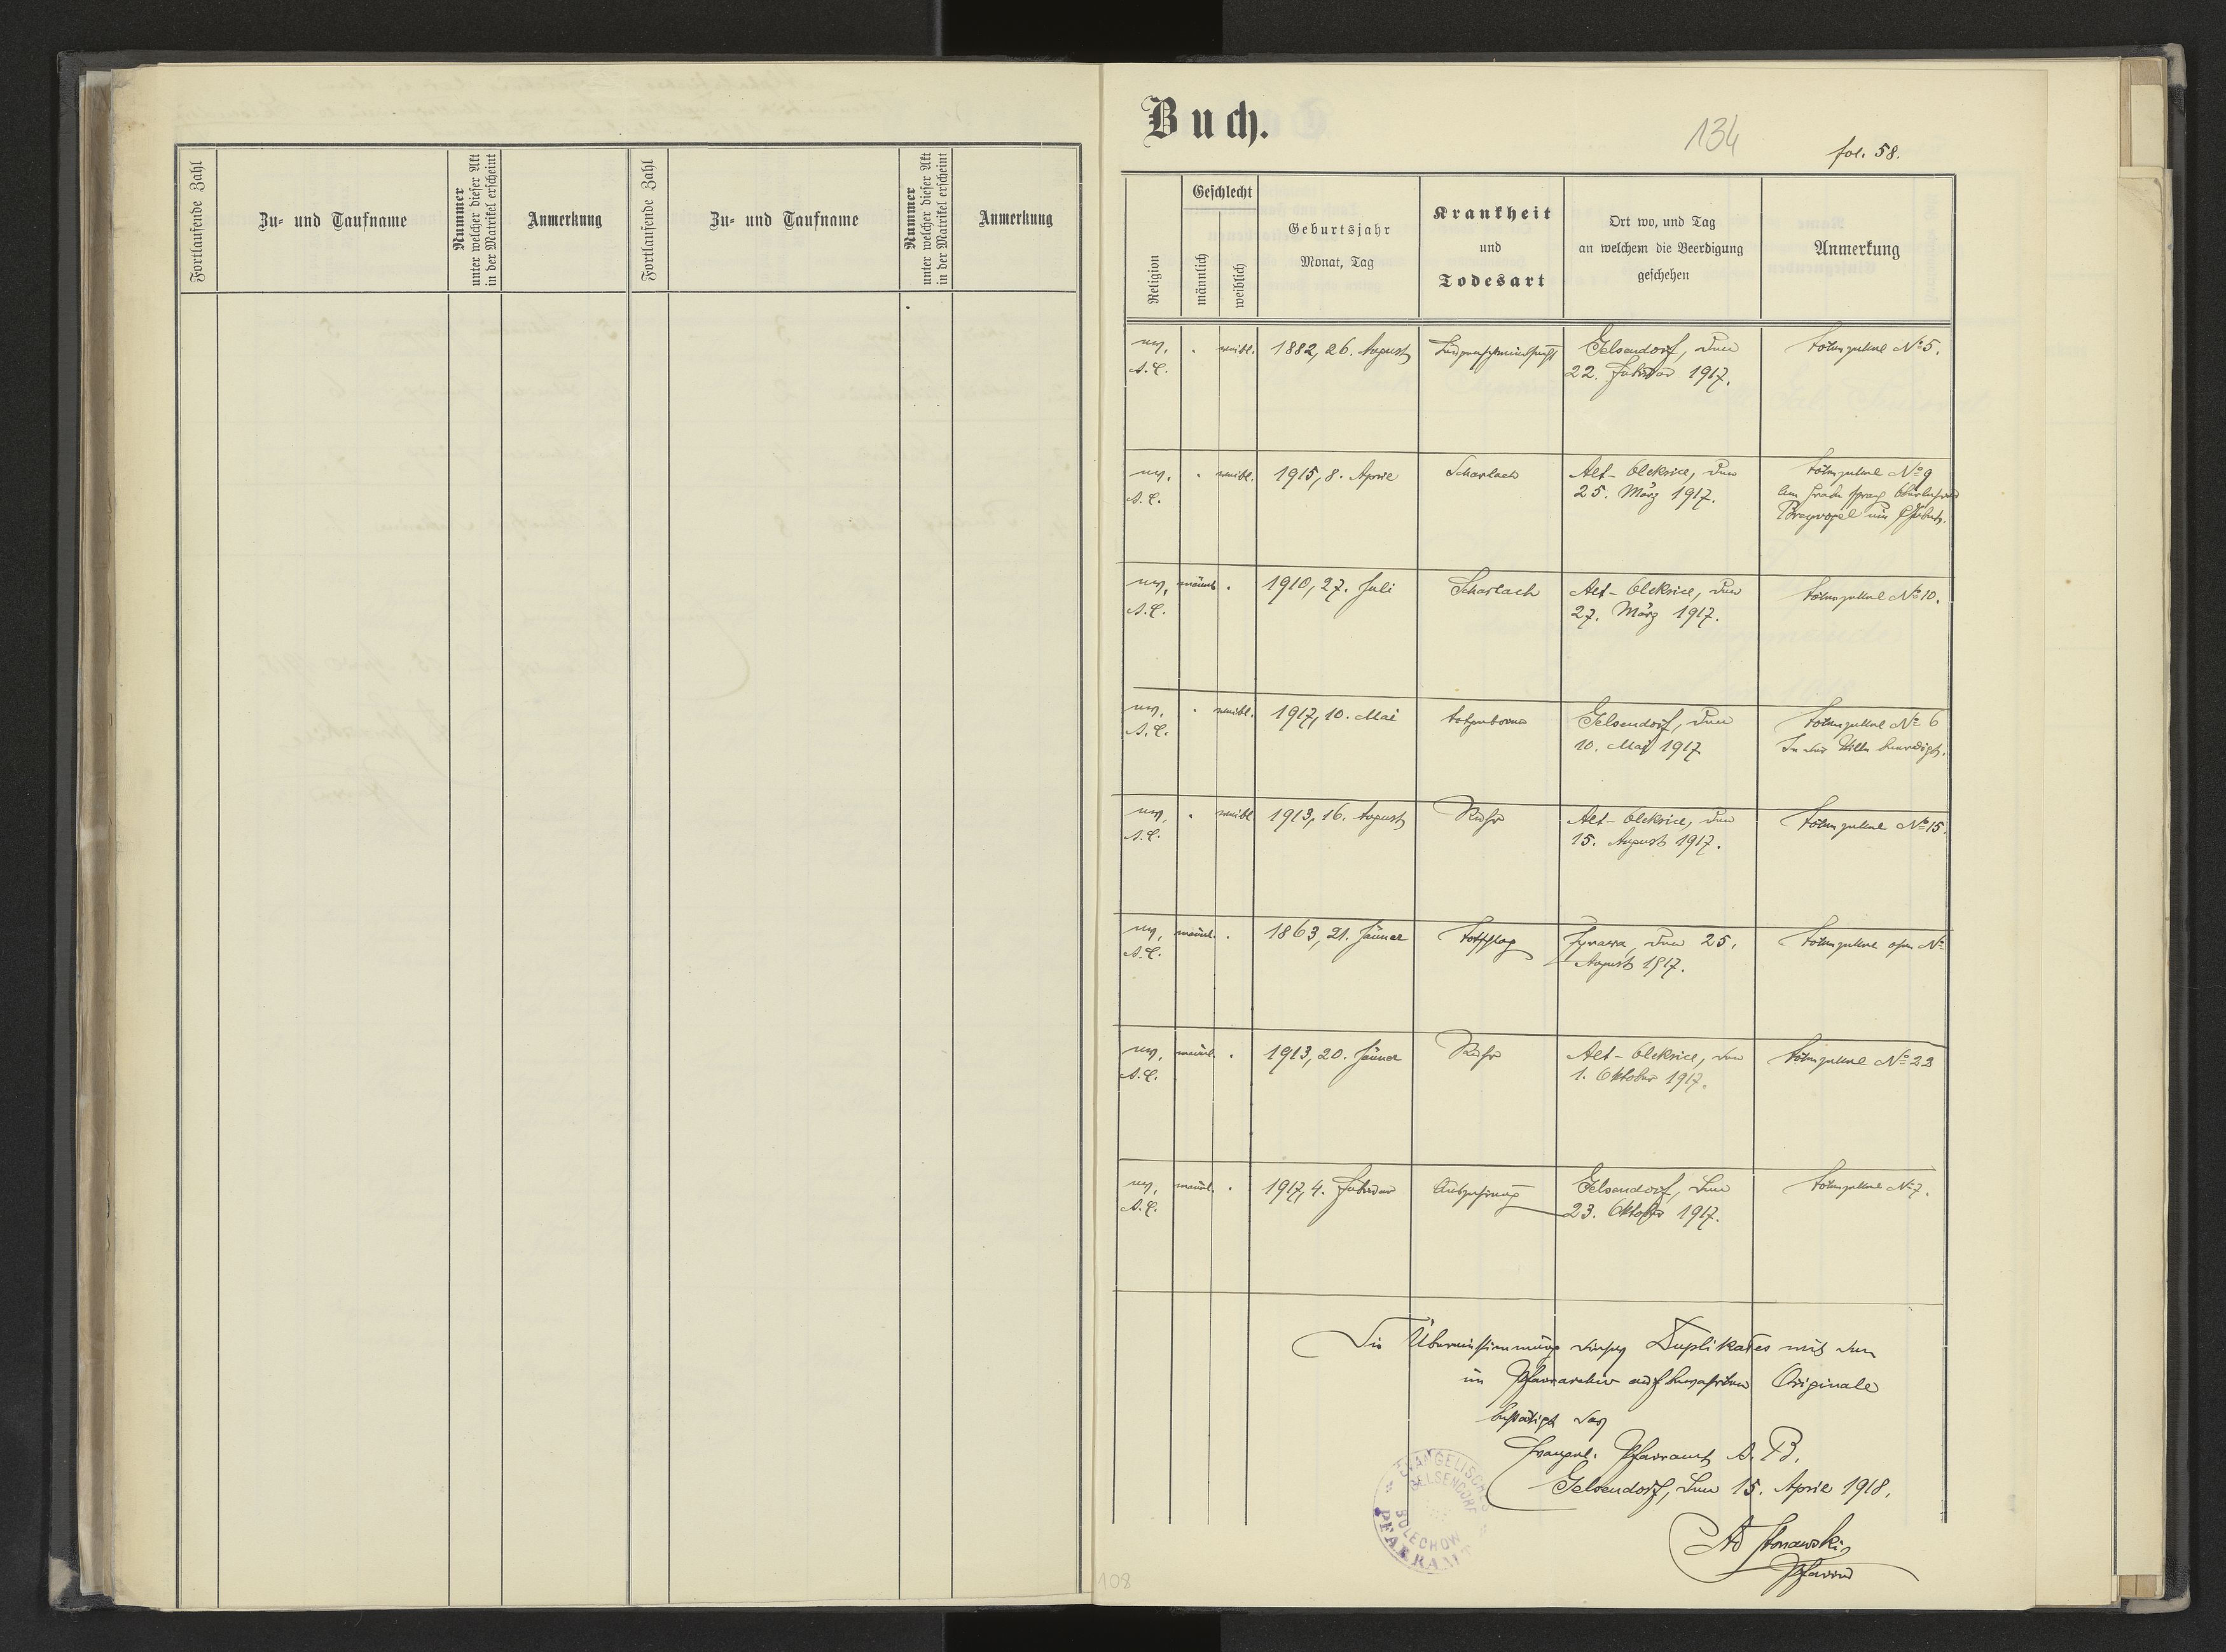 Fortlaufende Zahl
Zu- und Taufname
Nummer
unter welcher dieser Akt
in der Matrikel erscheint
Anmerkung
Fortlaufende Zahl
Zu- und Taufname
Nummer
unter welcher dieser Akt
in der Matrikel erscheint
Anmerkung
Buch.
134
fol. 58.
Religion
Geschlecht
männlich
weiblich
Geburtsjahr
Monat, Tag
Krankheit
und
Todesart
Ort wo, und Tag
an welchem die Beerdigung
geschehen
Anmerkung
ev. A.C. weibl. 1882, 26. August Lungenschwindsucht Gelsendorf, den 22. Februar 1917. Totenzettel № 5.
ev. A.C. weibl. 1915, 8. April Scharlach Alt-Oleksice, den 25. März 1917. Totenzettel № 9
ev. A.C. männl. 1910, 27. Juli Scharlach Alt-Oleksice, den 27. März 1917. Totenzettel № 10.
ev. A.C. weibl. 1917, 10. Mai totgeboren Gelsendorf, den 10. Mai 1917 Totenzettel № 6
In der Stille beerdigt.
ev. A.C. weibl. 1913, 16. August Ruhr Alt-Oleksice, den 15. August 1917. Totenzettel № 15.
ev. A.C. männl. 1863, 21. Jänner Totschlag Zyrawa, den 25. August 1917. Totenzettel ohne №
ev. A.C. männl. 1913, 20. Jänner Ruhr Alt-Oleksice, den 1. Oktober 1917. Totenzettel № 22
ev. A.C. männl. 1917, 4. Februar Auszehrung Gelsendorf, den 23. Oktober 1917. Totenzettel № 7.
Die Übereinstimmung dieses Duplikates mit dem
im Pfarrarchiv aufbewahrten Originale
bestätigt das
Evangel. Pfarramt A. B.
Gelsendorf, den 15. April 1918.
EVANGELISCHES
PFARRAMT
GELSENDORF
BOLECHOW
Pfarrer
108